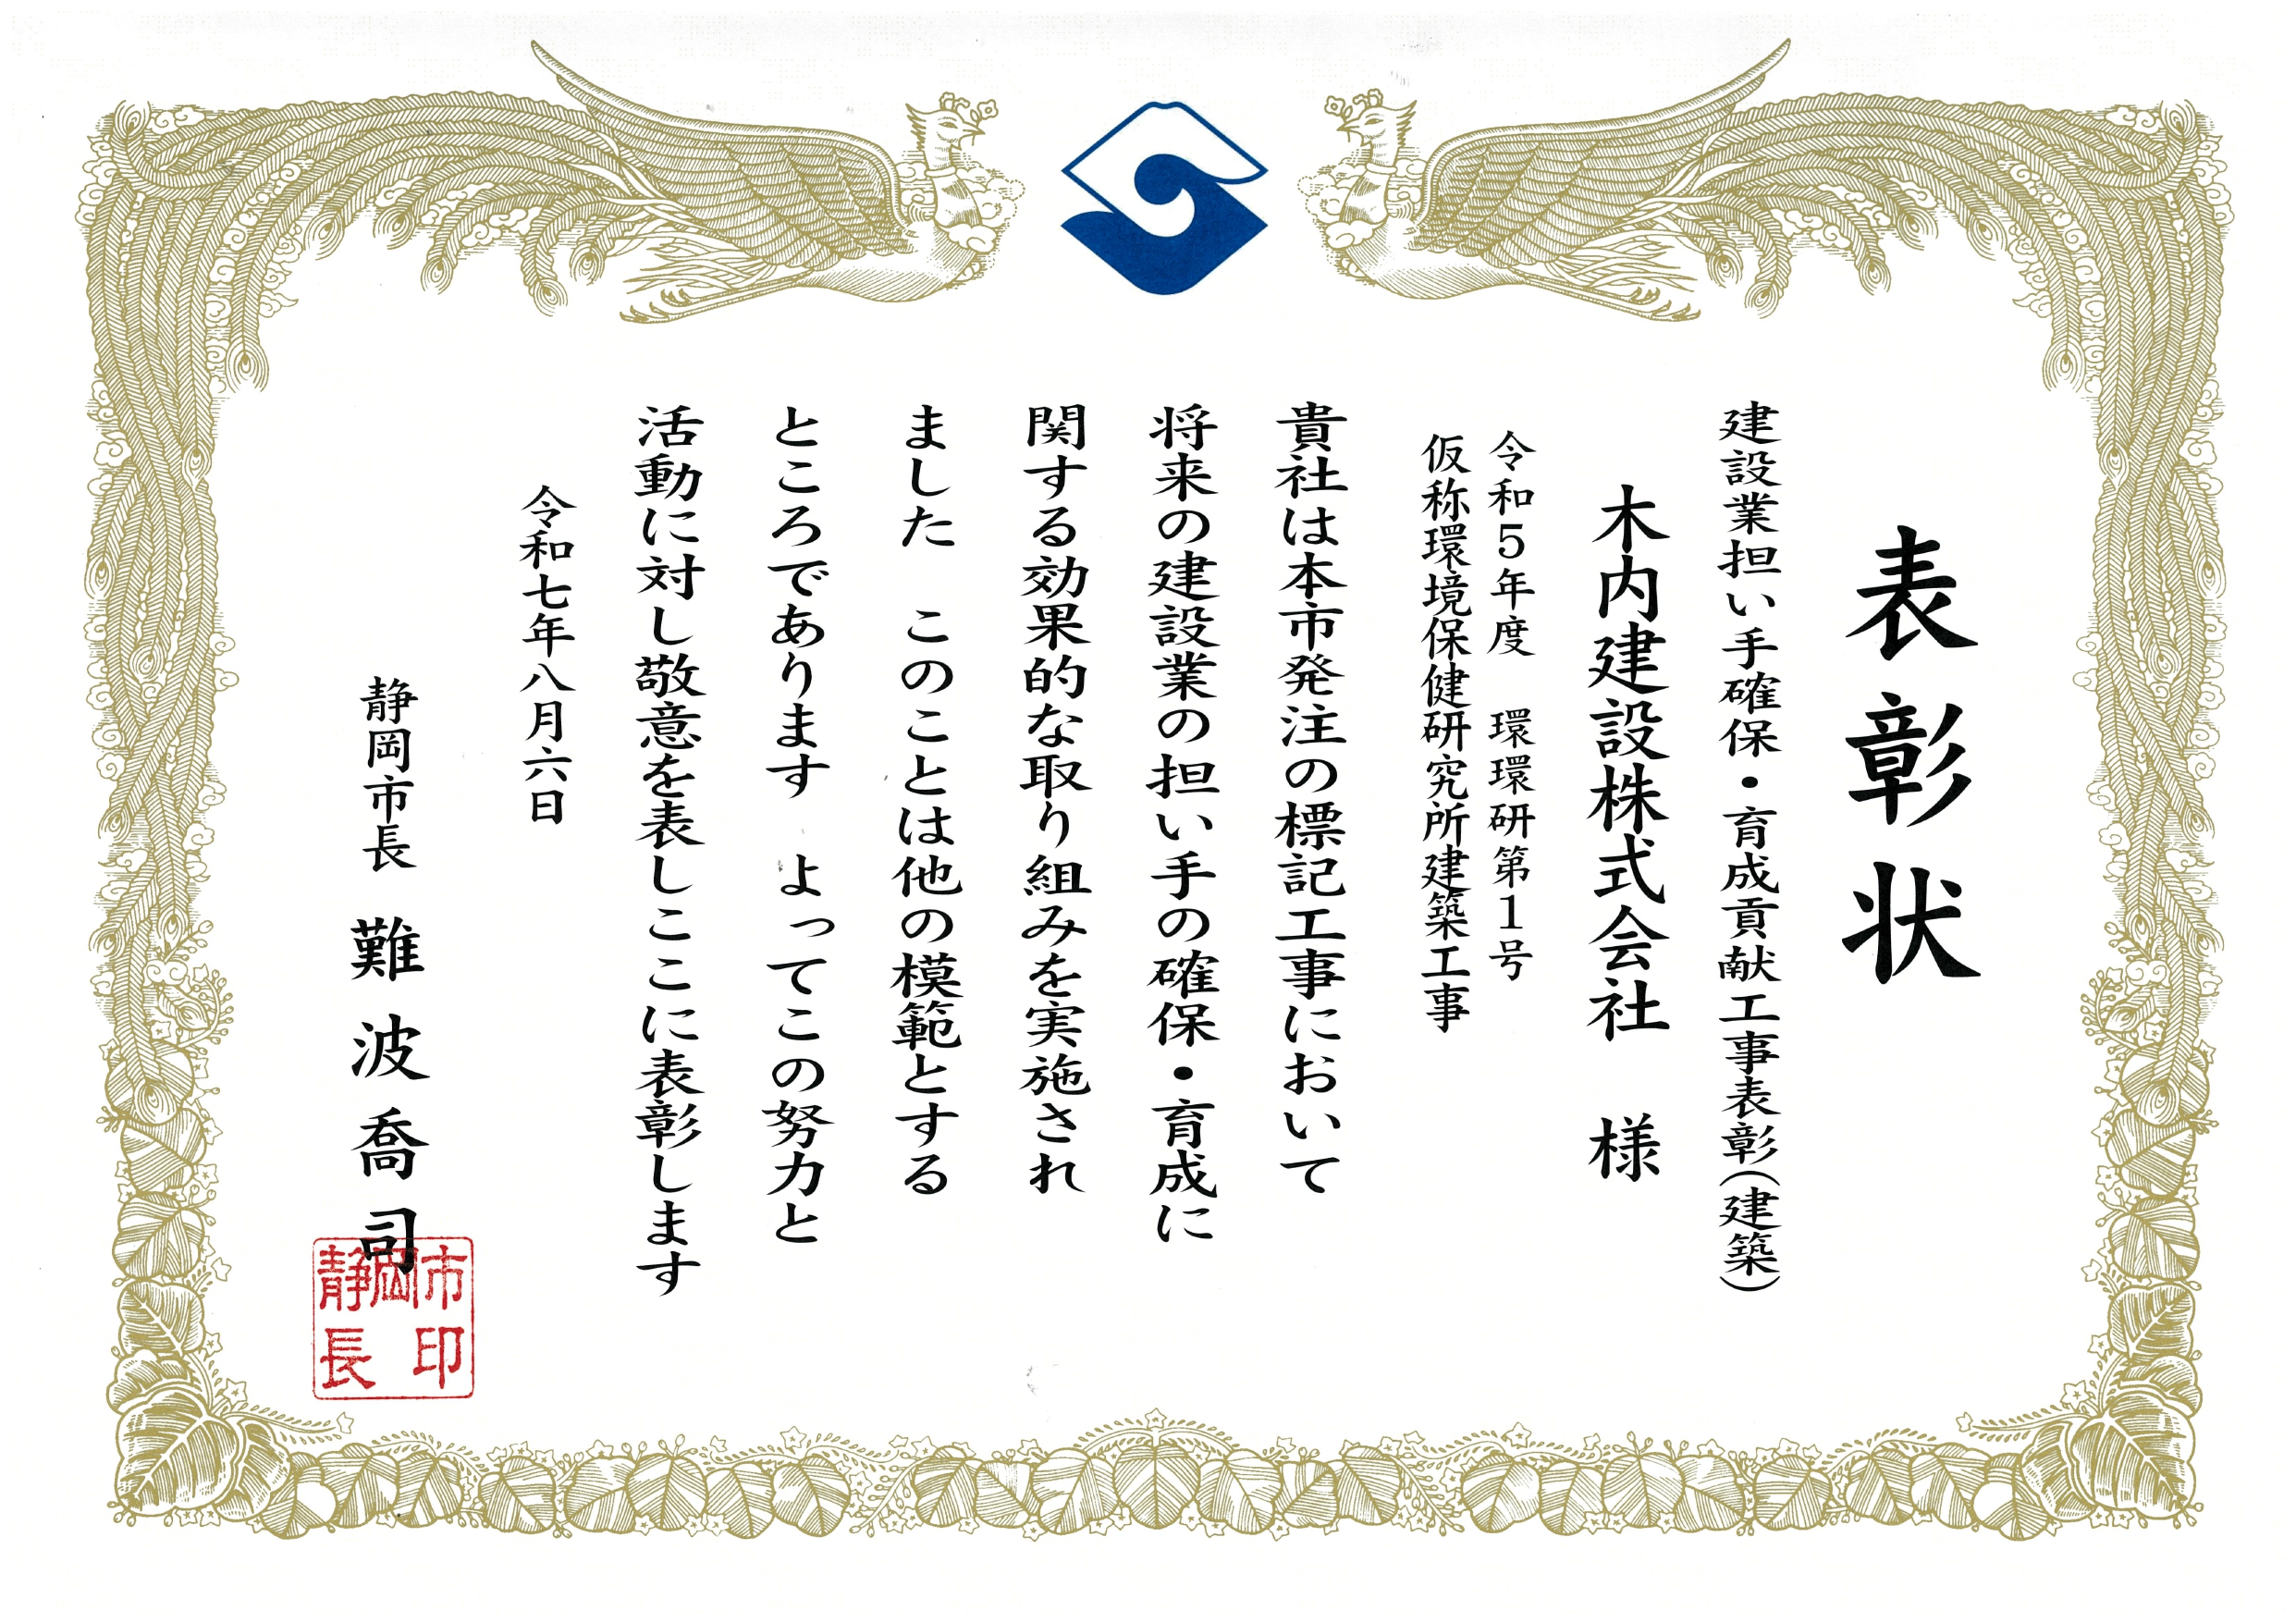 表彰状
建設業担い手確保・育成貢献工事表彰(建築)
木内建設株式会社　様
令和５年度　環環研第１号
仮称環境保健研究所建築工事
貴社は本市発注の標記工事において
将来の建設業の担い手の確保・育成に
関する効果的な取り組みを実施され
ました　このことは他の模範とする
ところであります　よってこの努力と
活動に対し敬意を表しここに表彰します
令和七年八月六日
静岡市長　難波喬司
静岡市長印